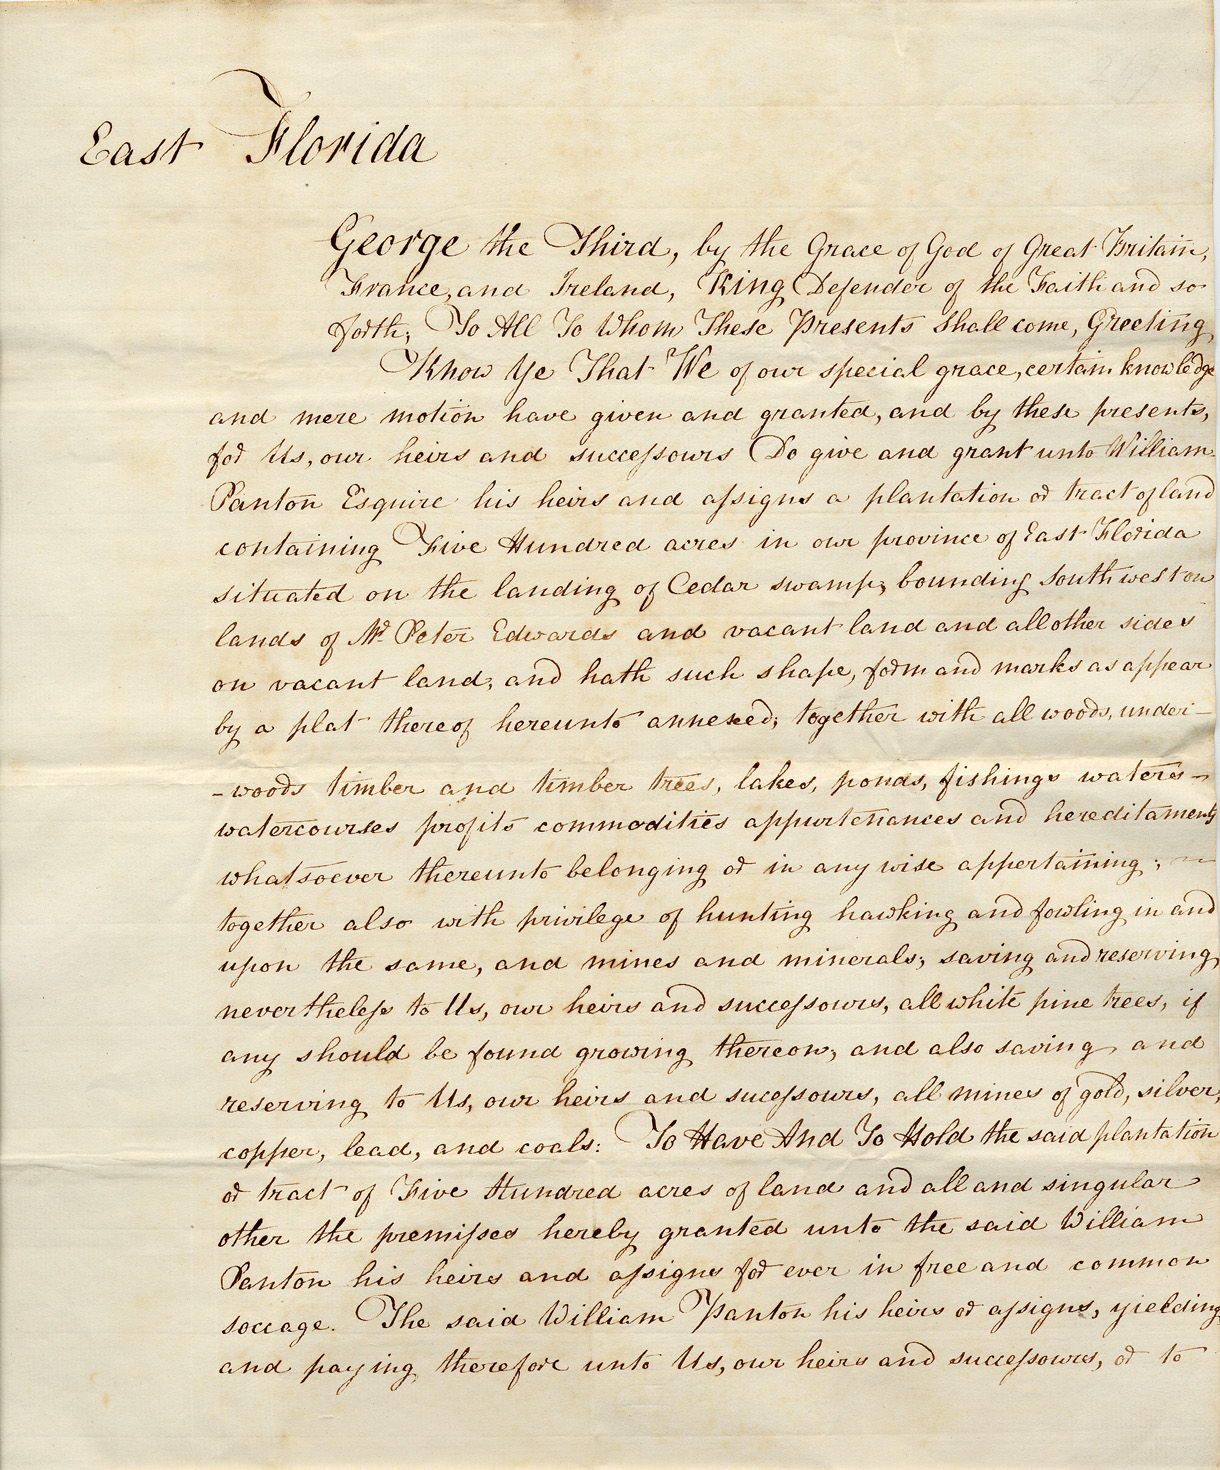 East Florida
George the Third, by the Grace of God of Great Britain,
France, and Ireland, King Defender of the Faith and so
forth; To All To Whom These Presents shall come, Greeting,
Know Ye That We of our special grace, certain knowledge
and mere motion have given and granted, and by these presents,
for Us, our heirs and successours Do give and grant unto William
Panton Esquire his heirs and assigns a plantation or tract of land
containing Five Hundred acres in our province of East Florida
situated on the landing of Cedar swamp, bounding Southwest on
lands of Mr. Peter Edwards and vacant land and all other sides
on vacant land; and hath such shape, form and marks as appear
by a plat thereof hereunto annexed; together with all woods, under-
-woods timber and timber trees, lakes, ponds, fishings waters-
watercourses profits commodities appurtenances and hereditaments
whatsoever thereunto belonging or in any wise appertaining;
together also with privilege of hunting hawking and fowling in and
upon the same, and mines and minerals; saving and reserving
nevertheless to Us, our heirs and successours, all white pine trees, if
any should be found growing thereon, and also saving and
reserving to Us, our heirs and sucessours, all mines of gold, silver,
copper, lead, and coals: To Have And To Hold the said plantation
or tract of Five Hundred acres of land and all and singular
other the premisses hereby granted unto the said William
Panton his heirs and assigns for ever in free and common
soccage. The said William Panton his heirs or assigns, yielding
and paying therefore unto Us, our heirs and successours, or to